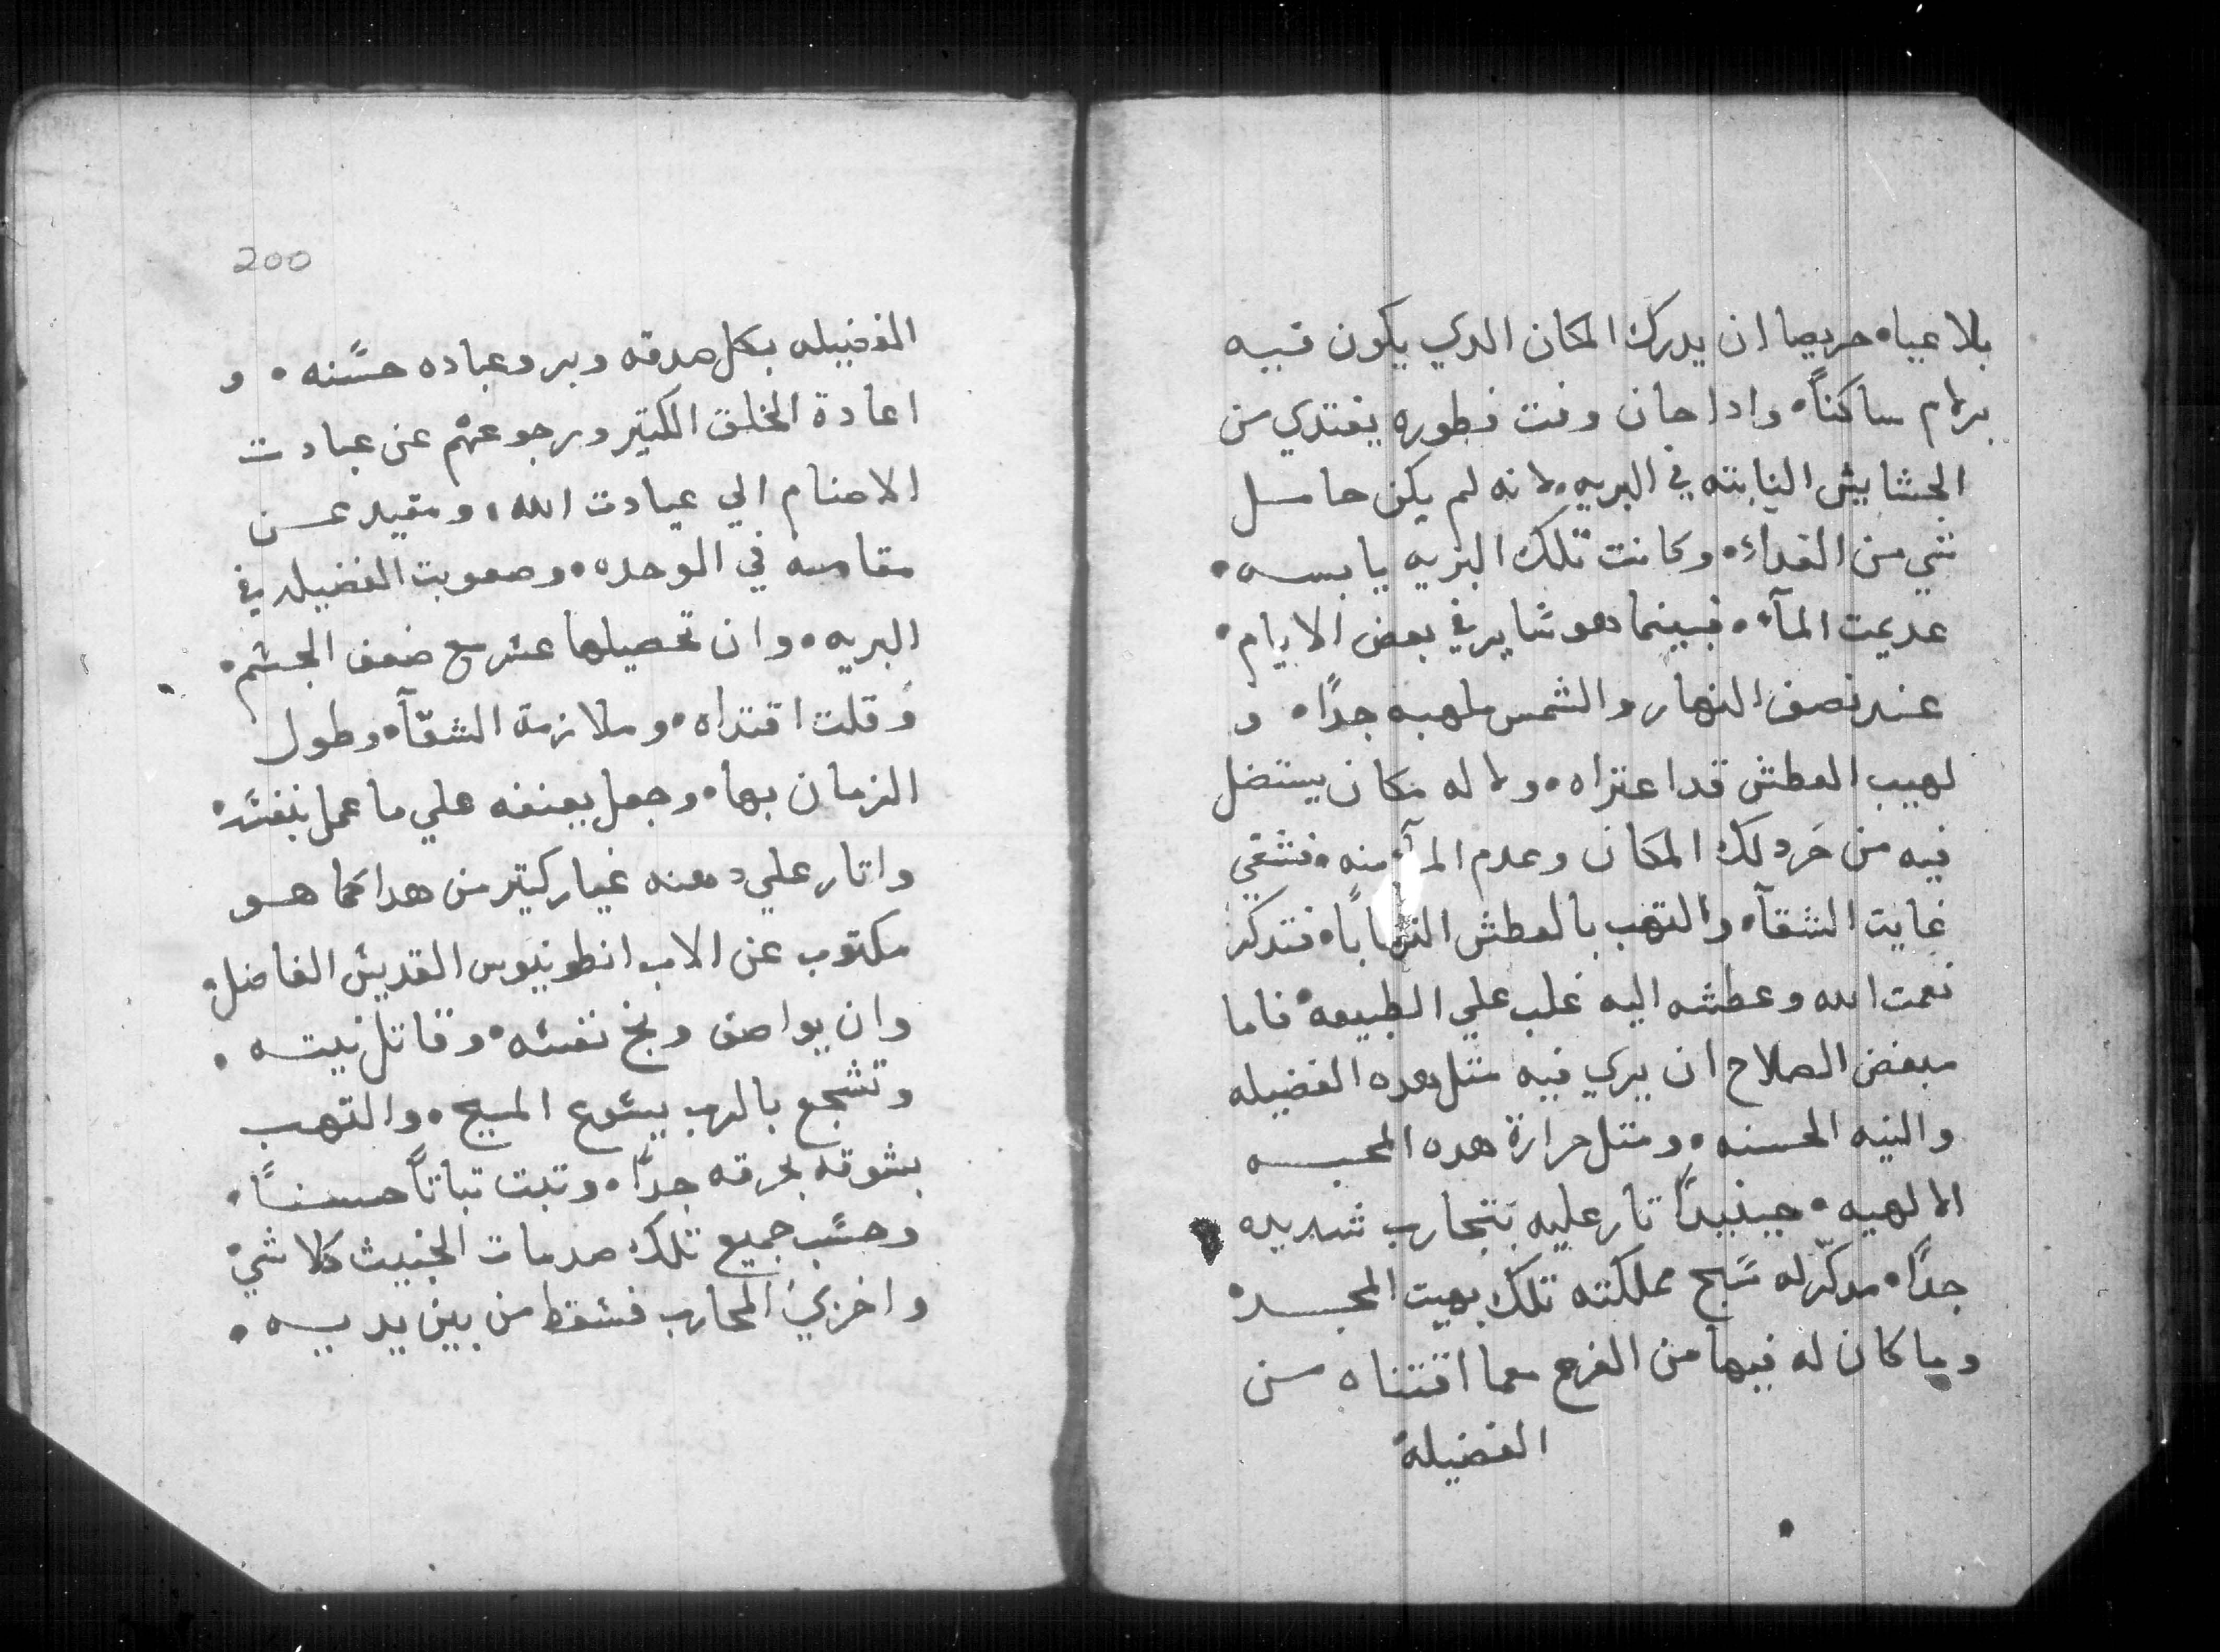 بلا عياه حريصا ان يدرك المكان الدي يكون فيه
برلام ساكناً۰ وادا حان وقت فطوره يغتدي من
الحشايش النابته في البريه۰ لانه لم يكن حامل
شي من الغداء۰ وكانت تلك البريه يابسه۰
عديمت المآء۰ فبينما هو شاير في بعض الايام۰
عند نصف النهار والشمس ملهبه جداً۰ و
لهيب العطش قد اعتراه۰ ولا له مكان يستضل
فيه من حر دلك المكان وعدم المآ منه۰ فشقي
غايت الشقآ۰ والتهب بالعطش التهاباً۰ فتدكر
نعمت الله وعطشه اليه غلب علي الطبيعه۰ فاما
مبغض الصلاح ان يري فيه متل هده الفضيله
والنيه الحسنه۰ ومتل حرارة هده المحبه
الالهيه۰ حينيداً تار عليه بتجارب شديده
جداً۰ مدكّر له سَبح مملكته تلك بهيت المجد۰
وما كان له فيها من الفرح مما اقتناه من
الفضيله
200
الفضيله بكل صدقه وبر وعباده حسَنه۰ و
اعادة الخلق الكتير ورجوعهم عن عبادت
الاصنام الي عبادت الله، ومقيد عن
مقامه في الوحده۰ وصعوبت الفضيله في
البريه۰ وان تحصيلها عسر مع ضعف الجسم۰
وقلت اقتداه۰ وملازمة الشقآ۰ وطول
الزمان بها۰ وجعل يعنفه علي ما عمل بنفسه۰
واتار علي دهنه غيار كتير من هدا كما هو
مكتوب عن الاب انطونيوس القديس الفاضل۰
وان يواصف وبخ نفسه۰ وقاتل نيته۰
وتشجع بالرب يسوع المسيح۰ والتهب
بشوقه بحرقه جداً۰ وتبت تباتاً حسناً۰
وحسَب جميع تلك صدمات الخبيث كلا شي۰
واخزي المحارب فسقط من بين يديه۰